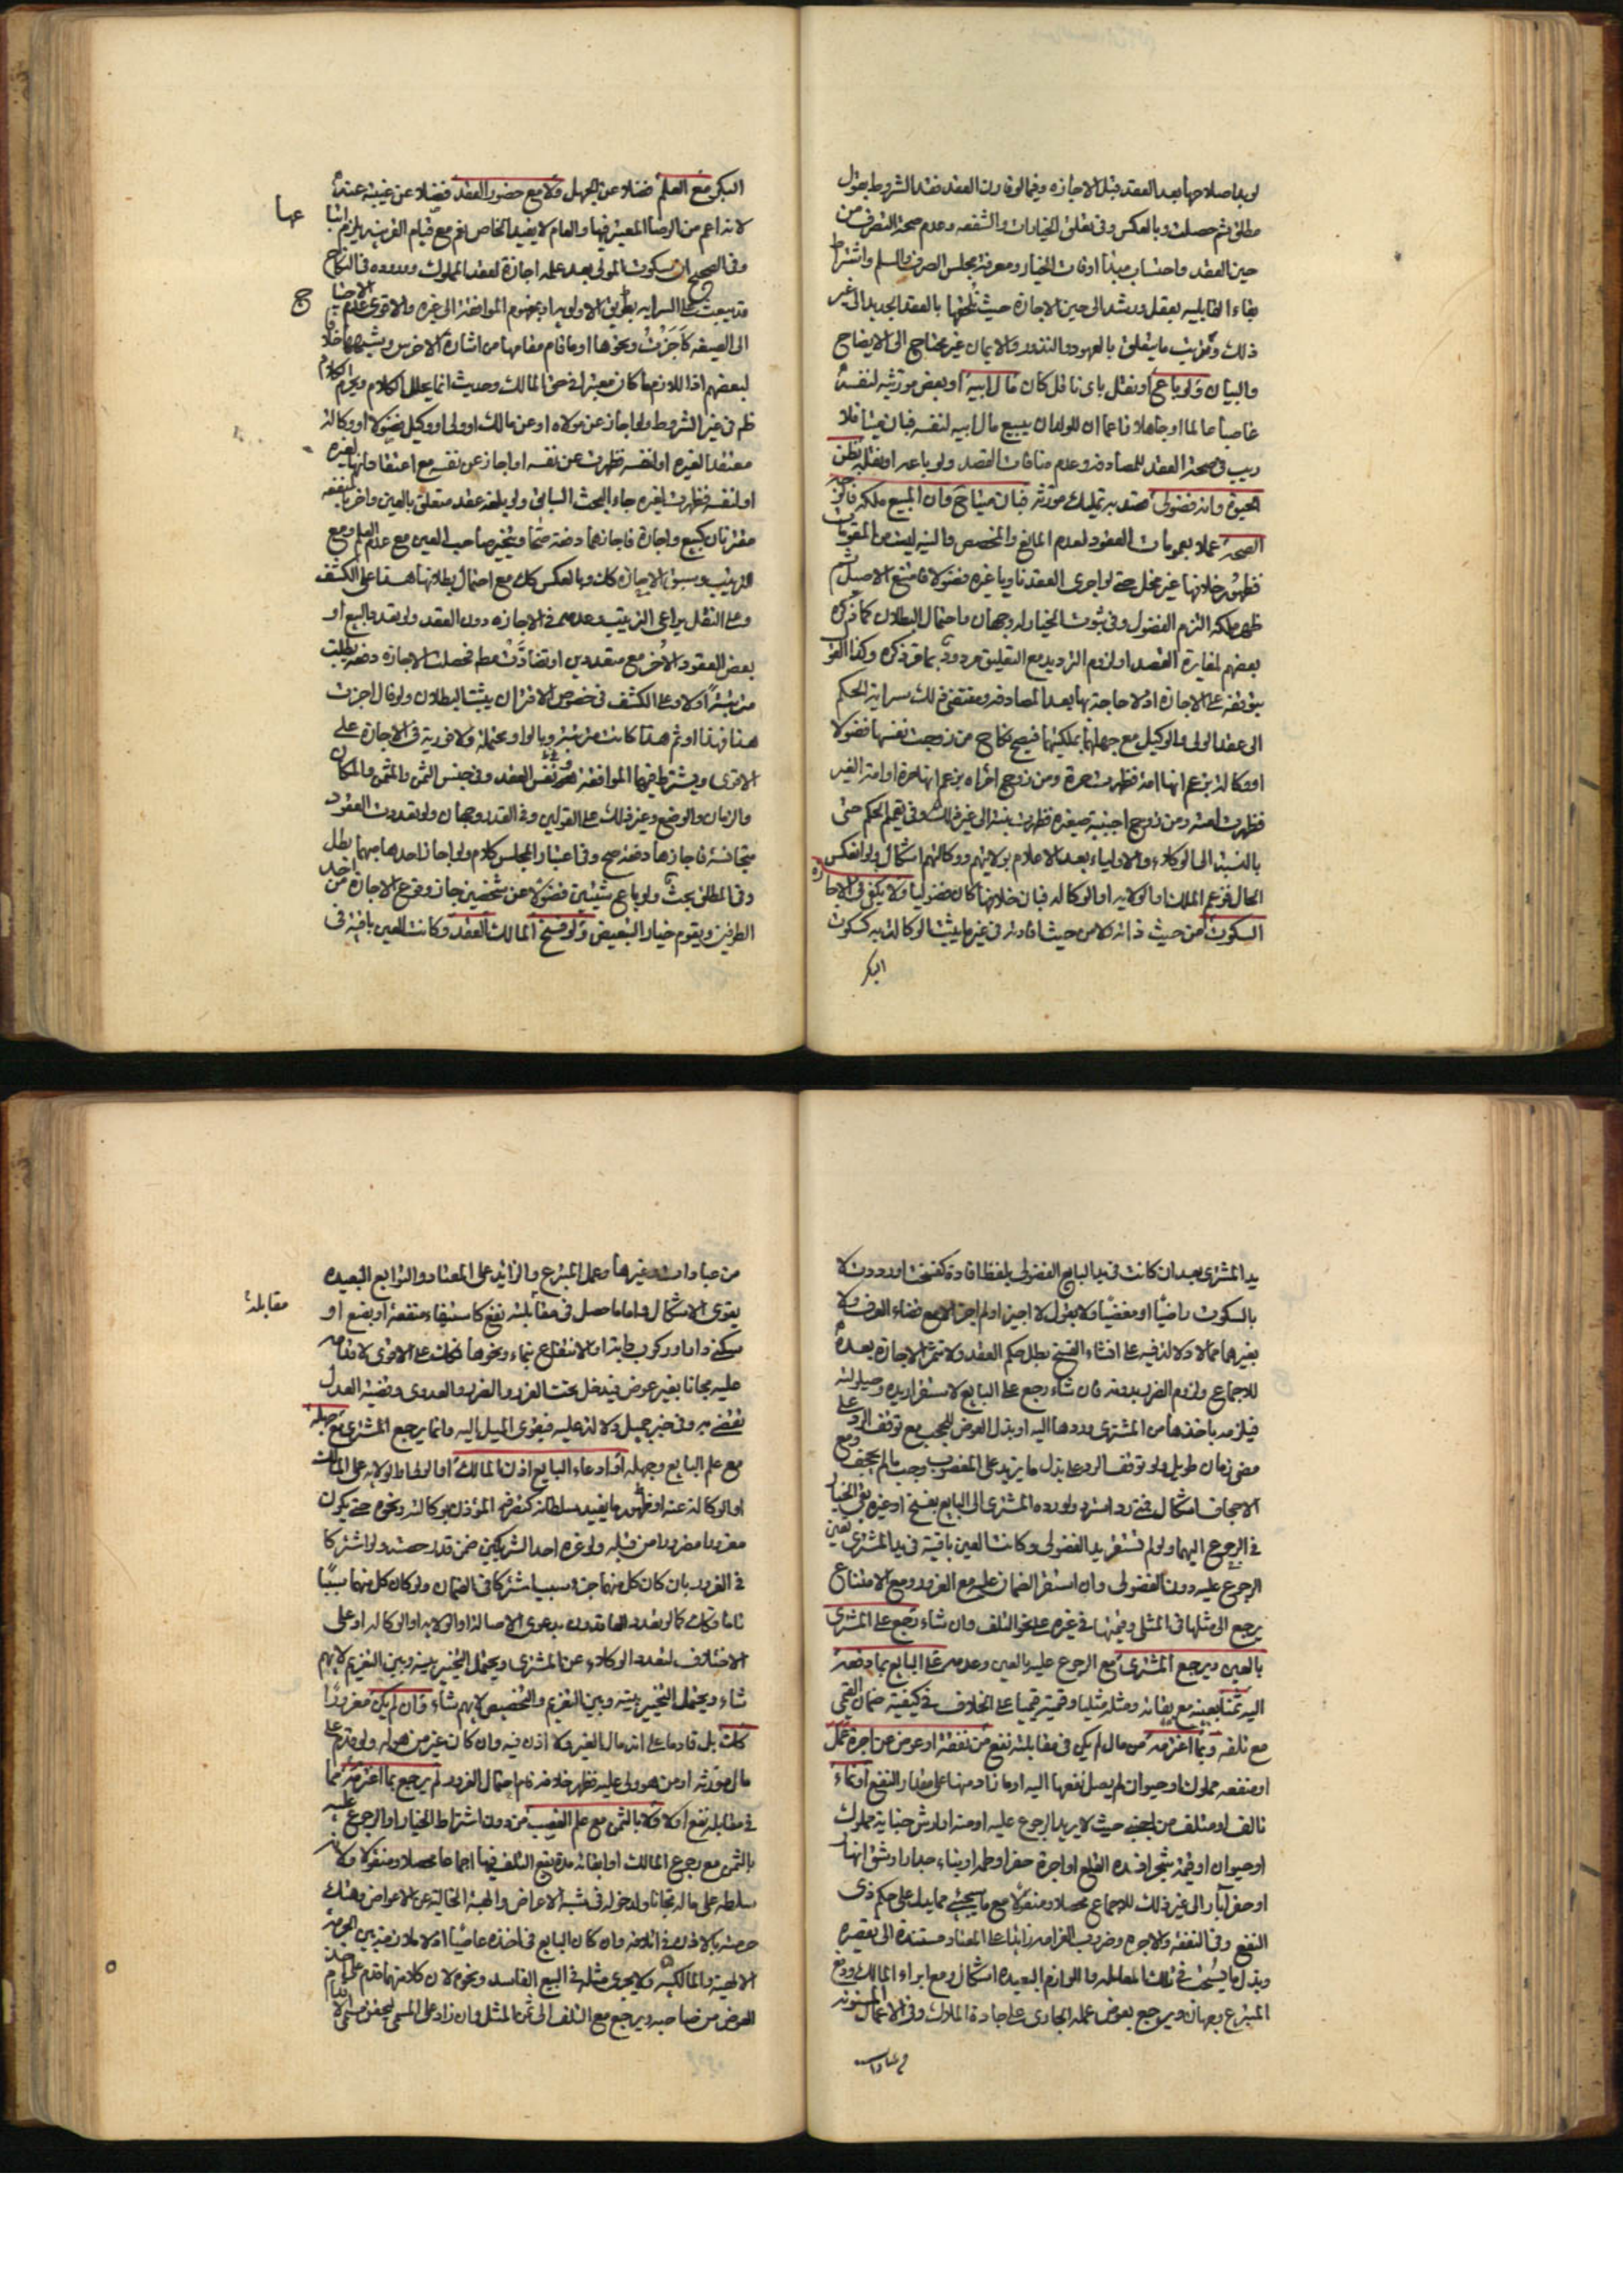 لو بدا صلاحها بعد العقد قبل الاجازه وفيما لو قارن العقد فقد الشروط بقول
مطلق ثم حصلت وبالعكس وفى تعلق الخيارات والشفعه وعدم صحة التصرف من
حين العقد واحتساب مبدأ اوقات الخيار ومعرفة مجلس الصرف والسلم واشتراط
بقاء القابليه بعقل ورشد الى حين الاجازة حيث نلحقها بالعقد الجديد الى غير
ذلك وتقريب ما يتعلق بالعهود والنذور والايمان غير محتاج الى الايضاح
والبيان ولو باع او نقل باى ناقل كان مال ابيه او بعض مورثيه لنفسه
غاصبا عالما او جاهلا زاعما ان للولد ان يبيع مال ابيه لنفسه فبان ميتا فلا
ريب فى صحة العقد للمصادفه وعدم منافات القصد ولو باعه او نقله بظن
الحيوة وانه فضولى قصد به تمليك مورثه فبان ميتا ح وان المبيع ملكه فالاقوى
الصحة عملا بعمومات العقود لعدم المانع والمخصص والنيه ليست من المقومات
فظهور خلافها غير مخل حتى لو اجرى العقد ناويا غيره فضولا فامتنع الاصيل ثم
ظهر ملكه التزم الفضول وفى ثبوت الخيار له وجهان واحتمال البطلان كما ذكره
بعضهم لمغايرة القصد او لزوم الترديد مع التعليق مردود بما مر ذكره وكذا القول
بتوقفه على الاجازة اذ لا حاجة بها بعد المصادفه ومقتضى ذلك سراية الحكم
الى عقد الولى والوكيل مع جهلهما بملكيتهما فيصح نكاح من زوجت نفسها فضولا
او وكالة بزعم انها امة فظهرت حرة ومن زوج امرأه بزعم انها حرة او امة الغير
فظهرت امته ومن زوج اجنبية صغيره فظهرت بنته الى غير ذلك وفى تعميم الحكم حتى
بالنسبة الى الوكلاء والاولياء بعد الاعلام بولايتهم ووكالتهم اشكال ولو انعكس
الحال فزعم الملك او الولايه او الوكاله فبان خلافها كان فضوليا ولا يكفى فى الاجازه
السكوت من حيث ذاته ولا من حيث افادته فى غير ما يثبت الوكالة به كسكوت
البكر
البكر مع العلم فضلا عن الجهل ولا مع حضور العقد فضلا عن غيبته عنه
لانه اعم من الرضا المعتبر فيها والعام لا يفيد الخاص نعم مع قيام القرينه يلزم اثباتها
عها
وفى الصحيح ان سكوت المولى بعد علمه اجازة لعقد المملوك ووروده فى النكاح
قد يبعث على السرايه بطريق الاولويه او بمفهوم الموافقة الى غيره والاقوى عدم الاحتياج
ج
الى الصيغه كاجزت ونحوها او ما قام مقامها من اشارة الاخرس وشبهها خلافا
لبعضهم اذ اللازم ما كان معتبرا فى حق المالك وحديث انما يحلل الكلام ويحرم الكلام
ظاهر فى غير الشروط ولو اجاز عن مولاه او عن مالك او ولى او وكيل فضولا او وكالة
معتقدا لغيره او لنفسه فظهرت عن نفسه او اجاز عن نفسه مع اعتقاد انها لغيره
او لنفسه فظهرت لغيره جاء البحث السابق ولو بلغه عقد متعلق بالعين واخر بالمنفعه
مقترنان كبيع واجارة فاجازهما دفعة صحا ويتخير صاحب العين مع عدم العلم ومع
الترتيب وسبق الاجازه كان وبالعكس كك مع احتمال بطلانها هذا على الكشف
وعلى النقل يراعى الترتيب وعدمه فى الاجازه دون العقد ولو تعدد البيع او
بعض العقود الاخر مع متعددين او تضادت معه فحصلت الاجازه دفعة بطلت
مرتبة اولا وعلى الكشف فى خصوص الاقتران يثبت البطلان ولو قال اجزت
هذا فهذا او ثم هذا كانت مرتبة وبالواو محتملة ولا فورية فى الاجازة على
الاقوى ويشترط فيها الموافقة فى نفس العقد وفى جنس الثمن والمثمن والمكان
والزمان والوضع وغير ذلك على القولين وفى القدر وجهان ولو تعددت العقود
متجانسة فاجازها دفعة صح وفى اعتبار المجلس كلام ولو اجاز احدها مبهما بطل
وفى المطلق بحث ولو باع شيئين فضولا عن شخصين جاز وقوع الاجازة من احد
الطرفين ويقوم خيار التبعيض ولو فسخ المالك العقد وكانت العين باقية فى
يد المشترى بعد ان كانت فى يد البايع الفضولى بلفظ افاده كفسخت او رددت لا
بالسكوت راضيا او مغضبا ولا بقول لا اجيز او لم اجز الا مع قضاء العرف ولا
بغيرهما مما لا دلالة فيه على انشاء الفسخ بطل حكم العقد ولا تثمر الاجازة بعده
للاجماع ولزوم الضرر بدونه فان شاء رجع على البايع لاستقرار يده وحيلولته
فيلزمه باخذها من المشترى وردها اليه او بذل العوض للحجب مع توقف الرد على
مضى زمان طويل ولو توقف الرد على بذل ما يزيد على المغصوب وجب ما لم يجحف ومع
الاجحاف اشكال فمتى رد استرد ولو رده المشترى الى البايع بفسخ او غيره بقى الخيار
فى الرجوع اليهما ولو لم تستقر يد الفضولى وكانت العين باقية فى يد المشترى تعين
الرجوع عليه دون الفضولى وان استقر الضمان عليه مع الغرور ومع الامتناع
يرجع الى مثلها فى المثلى وقيمتها فى غيره على نحو التلف وان شاء رجع على المشترى
بالعين ويرجع المشترى مع الرجوع عليه بالعين وعدمه على البايع بما دفعه
اليه ثمنا بعينه مع بقائه ومثله مثليا وقيمته قيميا على الخلاف فى كيفية ضمان القيمى
مع تلفه وبما اغترمه من مال لم يكن فى مقابلته نفع من نفقة او عوض عن اجرة عمل
او منفعه مملوك او حيوان لم يصل نفعها اليه او ما زاد منها على مقدار النفع او نماء
تالف او متلف من اجنبى حيث لا يريد الرجوع عليه او منه او ارش جناية مملوك
او حيوان او قيمة شجر افسده القلع او اجرة حفر او طم او بناء جدار او شق انهار
او حفر آبار الى غير ذلك للاجماع محصلا ومنقولا مع ما سيجئ مما يدل على حكم ذى
النفع وفى النفقة والاجره وضروب الغرامه زائدا على المعتاد مستندة الى تقصيره
وبذل ما يستحب فى تلك المعامله واللوازم البعيده اشكال ومع ابراء المالك ودفع
المتبرع وجهان ويرجع بعوض عمله الجارى على جادة الملاك وفى الاعمال المسنونه
من عبادات
من عبادات وغيرها وعمل المتبرع والزايد على المعتاد والتوابع البعيده
يقوى الاشكال واما ما حصل فى مقابلته نفع كاستيفاء منفعة او بضع او
مقابلة
سكنى دار او ركوب دابة او الانتفاع بنماء ونحوها فكك على الاقوى لاقدامه
عليه مجانا بغير عوض فيدخل تحت الغرور والضرر والعدوى وقضية العدل
تقضى به وفى خبر جميل دلالة عليه فيقوى الميل اليه وانما يرجع المشترى مع جهله
مع علم البايع وجهله او ادعاء البايع اذن المالك او الولاية على المالك
او الوكالة عنه او ظهور ما يفيد سلطانه كتصرفه المؤذن بوكالته ونحوه حتى يكون
مغرورا مضرورا من قبله ولو غره احد الشريكين ضمن قدر حصته ولو اشتركا
فى الغرور بان كان كل منهما جزء سبب اشتركا فى الضمان ولو كان كل منهما سببا
تاما فكك كما لو تعدد العاقدون بدعوى الاصالة او الولايه او الوكاله او على
الاختلاف لتعدد الوكلاء عن المشترى ويحتمل التخيير بينه وبين التغريم لايهم
شاء ويحتمل التخيير بينه وبين التغريم والتخصيص لايهم شاء وان لم يكن مغرورا
كك بل قادما على انه مال الغير ولا اذن فيه وان كان عن غير من هو له ولو قدم على
مال مورثه او من هو ولى عليه فظهر خلافه قام احتمال الغرور لم يرجع بما اغترمه مما
فى مقابله نفع اولا ولا بالثمن مع علم الغصب من دون اشتراط الخيار او الرجوع عليه
بالثمن مع رجوع المالك او ابقائه مدة يقع التلف فيها اجماعا محصلا ومنقولا ولانه
سلطه على ماله مجانا ولدخوله فى شبه الاعراض والهبة الخالية عن الاعواض وهتك
حرمته بالاذن فى اتلافه وان كان البايع فى اخذه عاصيا اذ لا ملازمة بين الحرمة
الالهية والمالكيه ولا يجرى مثله فى البيع الفاسد ونحوه لان كلا منهما قدم على اخذ
العوض من صاحبه ويرجع مع التلف الى ثمن المثل وان زاد على المسمى لتحقق معنى الاقدام